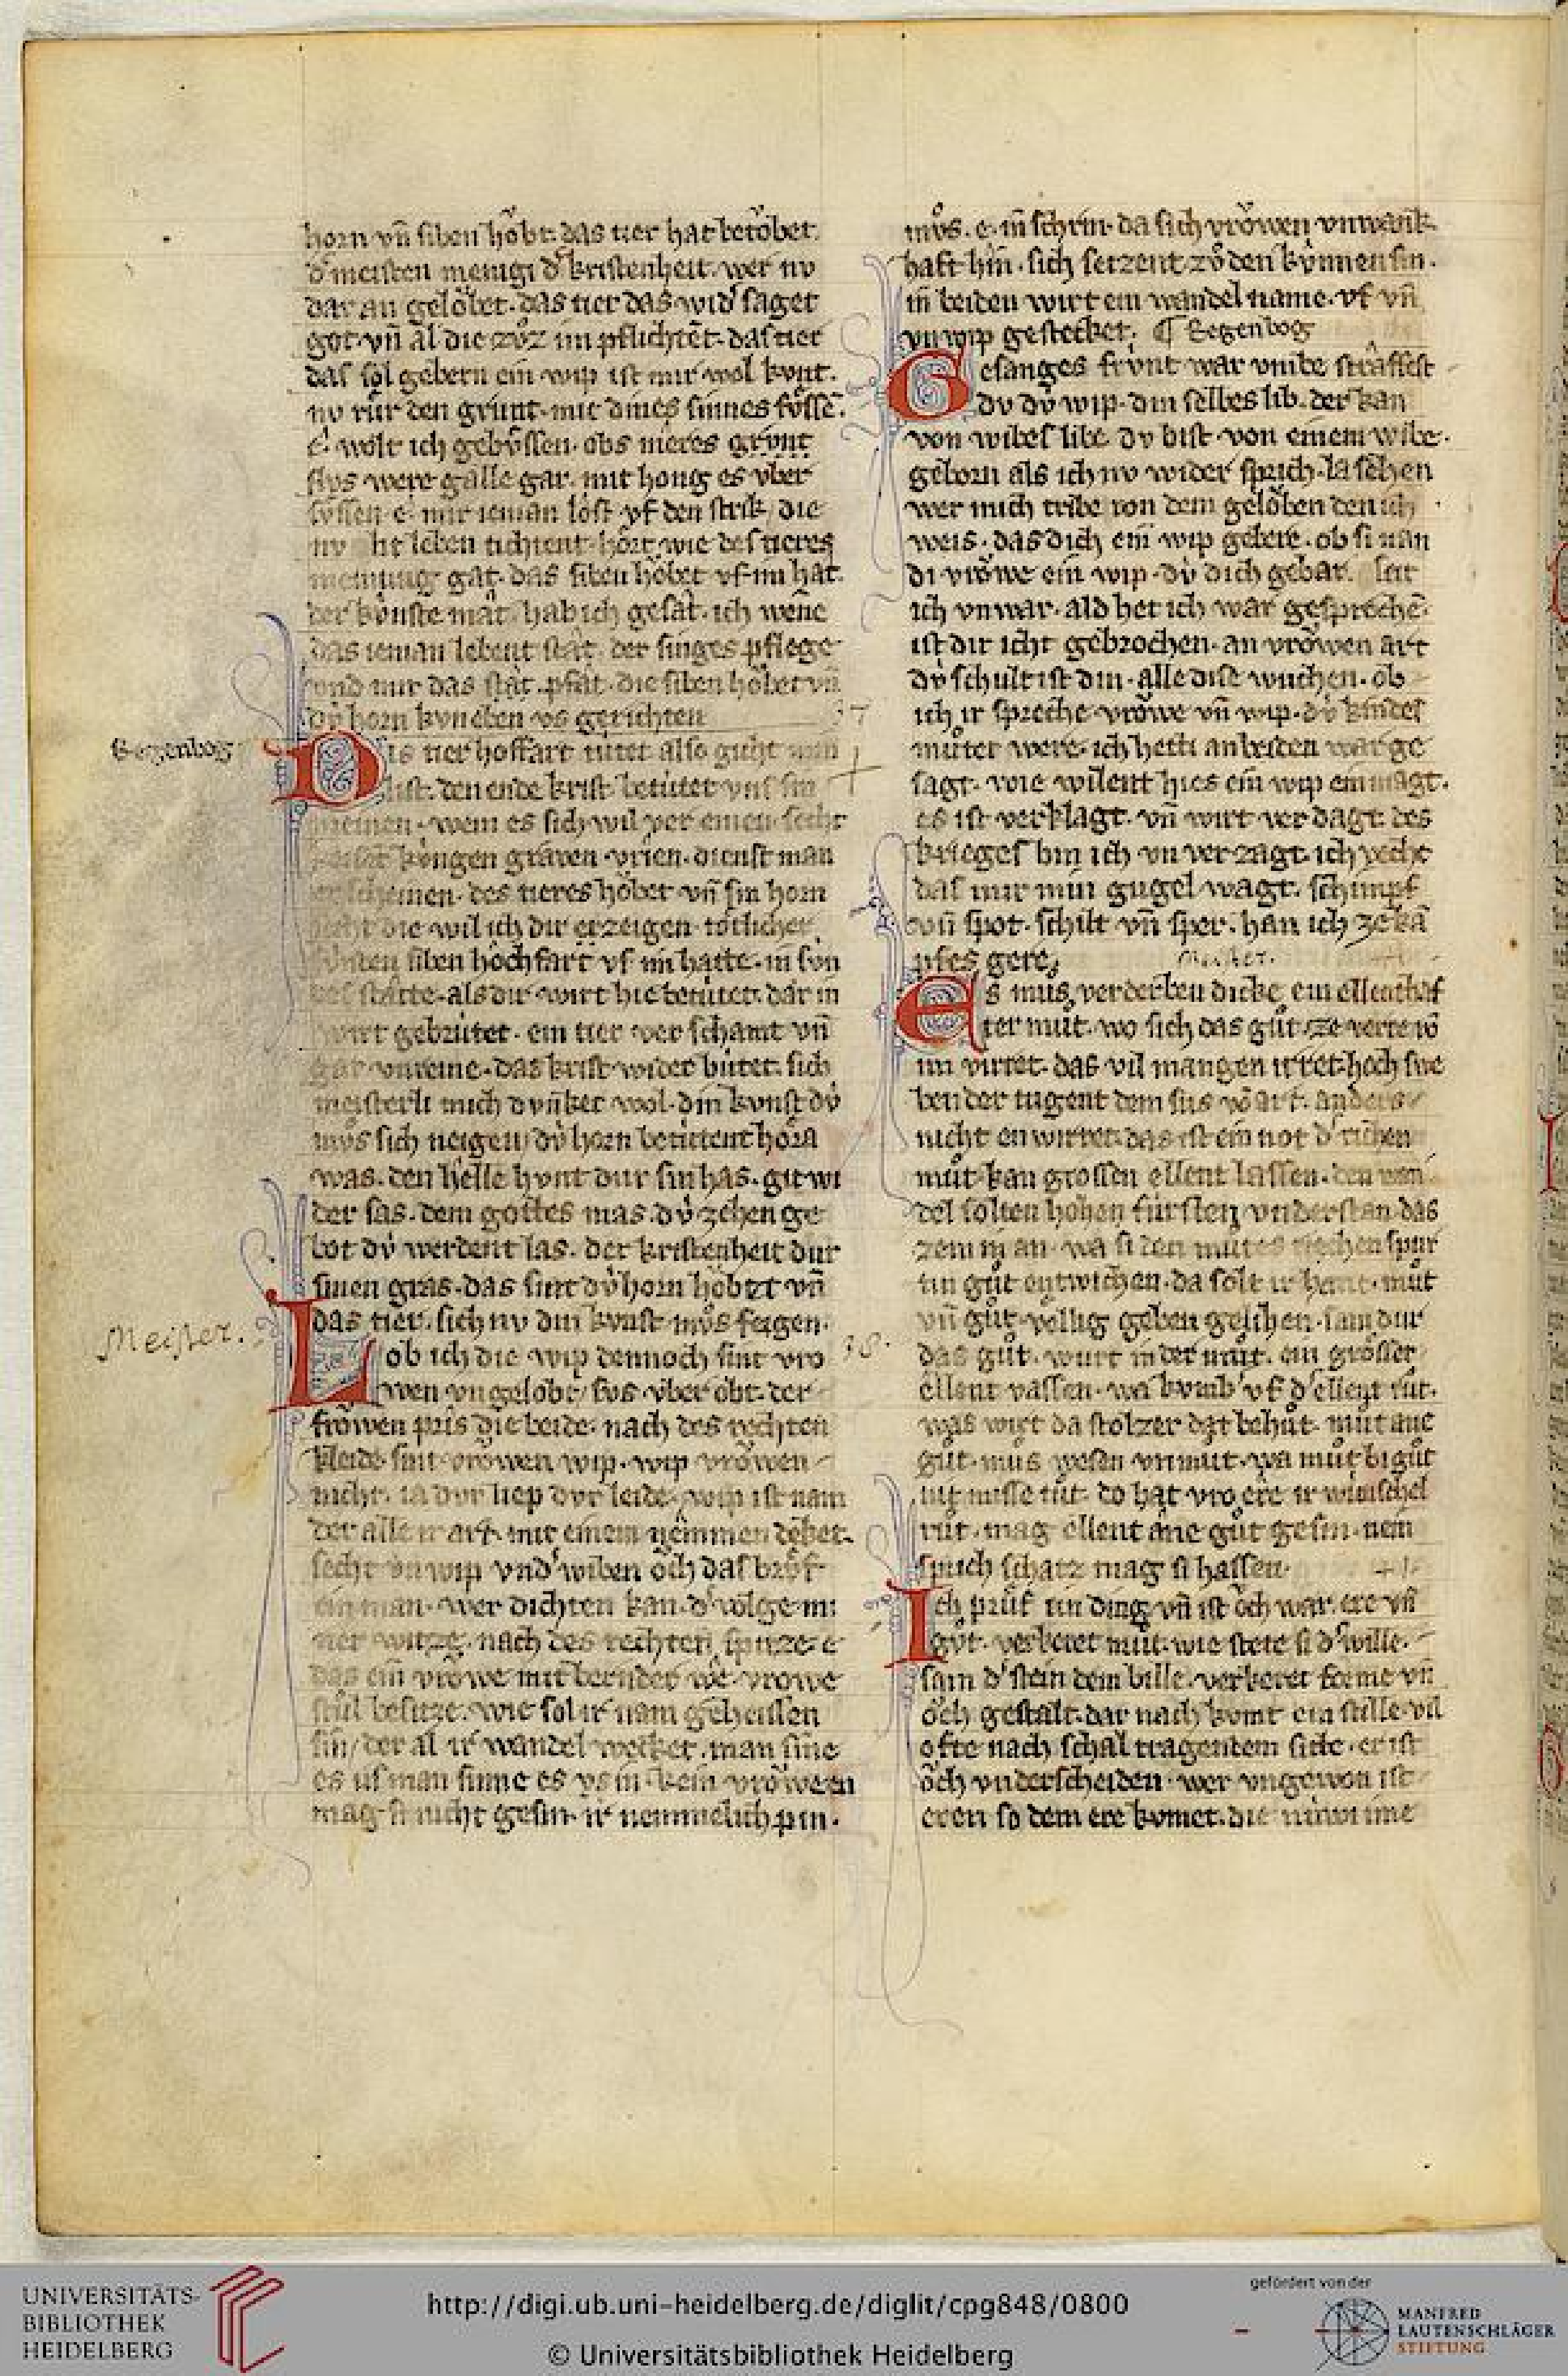 horn vn̄ siben hôbt. das tier hat betôbet.
d' meisten menigi d' kristenheit. wer nv
dar an gelôbet. das tier das wid' saget
got. vn̄ al die zůz im pflichtēt. das tier
das sol gebern ein wip ist mir wol kvnt.
nv růr den grunt. mit dines sinnes fůssē.
è. wolt ich gebůssen. obs meres grvnt
flvs were galle gar. mit honig es vber
sůssen e. mir ieman lôst vf den strik, die
nv leben tichtent. hôrt wie des tieres
meinung gat. das siben hôbet vf im hat.
der kůnste mat. hab ich gesat. ich wene
das ieman lebent stat. der singes pflege
vnd mir das stat. pfat. die siben hôbet vn̄
dv̓ horn kvn eben vs gerichten
Regenbog
Dis tier hoffart tůtet also gicht
list. den ende krist betůtet vns sin
meinen. wem es sich wil ver einen. secht
keiser kvngen graven vrien. dienst man
erscheinen. des tieres hôbet vn̄ sin horn
secht die wil ich dir erzeigen. tôtlicher
sv̓nden siben hochfart vf im hatte. in sôn
stette. als dir wirt hie betůtet. dar in
wirt gebrůtet. ein tier ver schamt vn̄
gar vnreine. das krist wider bůtet. sich
meisterli mich dvnket wol. din kvnst dv̓
mvͦs sich neigen, dv̓ horn betůtent hôra
was. den helle hvnt dur sin has. git wi
der sas. dem gottes mas. dv̓ zehen ge
bot dv̓ werdent las. der kristenheit dur
sinen gras. das sint dv̓ horn hôbet vn̄
das tier. sich nv din kvnst mvͦs feigen.
Meister.
Lob ich die wip dennoch sint vro
38.
wen vngelobt, svs vber obt. der
frôwen pris die beide. nach des rechten
kleide sint vrôwen wip. wip vrôwen
nicht. ia dvr liep dvr leide. wip ist nam
der alle ir art. mit einem nemmen deket.
secht vnwip vnd' wiben ôch das brůf
ein man. wer dichten kan. d' volge mi
ner witze. nach des rechten spitze. e
das ein vrôwe mit bernder we. vrowe
stůl besitze. wie sol ir nam geheissen
sin, der al ir wandel weket. man sinne
es us man sinne es vs in. kein vrôwern
mag si nicht gesin. ir nemmelich pin.
mvͦs. e. in schrin. da sich vrôwen vnwank
haft hin. sich setzent zů den kv̓nnen sin.
in beiden wirt ein wandel name. vf vn̄
vnwip gestecket. ¶ Regenbog
Gesanges frvnt war vmbe straffest
dv dv̓ wip. din selbes lib. der kan
von wibes libe. dv bist von einem wibe.
geborn als ich nv wider sprich. la sehen
wer mich tribe von dem gelôben den ich
weis. das dich ein wip gebere. ob si nan
di vrôwe ein wip. dv̓ dich gebar. seit
ich vnwar. ald het ich war gesprochē.
ist dir icht gebrochen. an vrôwen art
dv̓ schult ist din. alle dise wuchen. ob
ich ir spreche vrôwe vn̄ wip. dv̓ kindes
můter were. ich hetti an beiden war ge
sagt. wie wilent hies ein wip ein magt.
es ist verklagt. vn̄ wirt ver dagt. des
krieges bin ich vn ver zagt. ich vecht
das mir min gugel wagt. schimpf
vn̄ spot. schilt vn̄ sper. han ich ze kā
pfes gere.
Meister.
Es mus verderben dicke ein ellenthaf
ter můt. wo sich das gůt. ze verre vō
im virret. das vil mangen irret. hoch swe
ben der tugent dem sus vō art. anders
nicht en wirret. das ist ein not d' richen
můt. kan grossen ellent lassen. den wan
del solten hohen fůrsten vnderstan. das
zem in an. wa si den můtes riechen spur
im gůt entwichen. da solt ir hant. můt
vn̄ gůt. vôllig geben gelichen. sam dur
das gůt. wurt in der můt. ein grôsser
ellent vassen. wa kvmb' vf d' ellent tůt.
was wirt da stolzer dat behůt. můt ane
gůt. můs wesen vnmůt. wa můt bi gůt
nit misse tůt. do hat vro ere ir wůnschel
růt. mag ellent ane gůt gesin. nein
sprich schatz mag si hassen.
Ich průf ein ding vn̄ ist ôch war. ere vn̄
gůt. verkeret můt. wie stete si d' wille.
sam d' stein dem bille. verkeret forme vn̄
ôch gestalt. dar nach komt ein stille. vil
ofte nach schal tragentem sitte. er ist
ôch vnderscheiden. wer vngewon ist
eren so dem ere komet. die nimt ime
UNIVERSITÄTS-
BIBLIOTHEK
HEIDELBERG
http://digi.ub.uni-heidelberg.de/diglit/cpg848/0800
© Universitätsbibliothek Heidelberg
gefördert von der
MANFRED
LAUTENSCHLÄGER
STIFTUNG